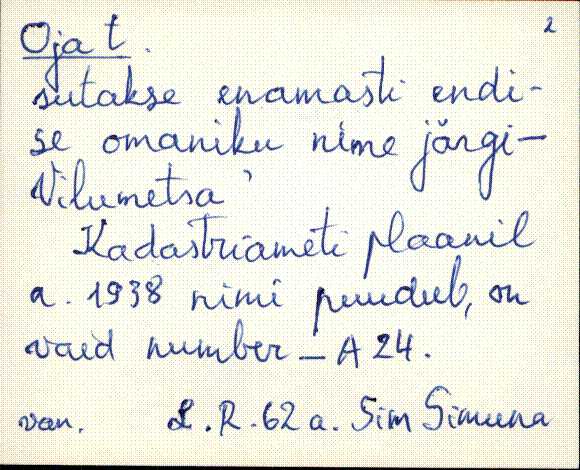 Oja t. 2
sutakse enamasti endi-
se omaniku nime järgi –
Vilumetsa'
Kadastriameti plaanil
a. 1938 nimi puudub, on
vaid number – A 24.
van. L.R. 62 a. Sim Simuna